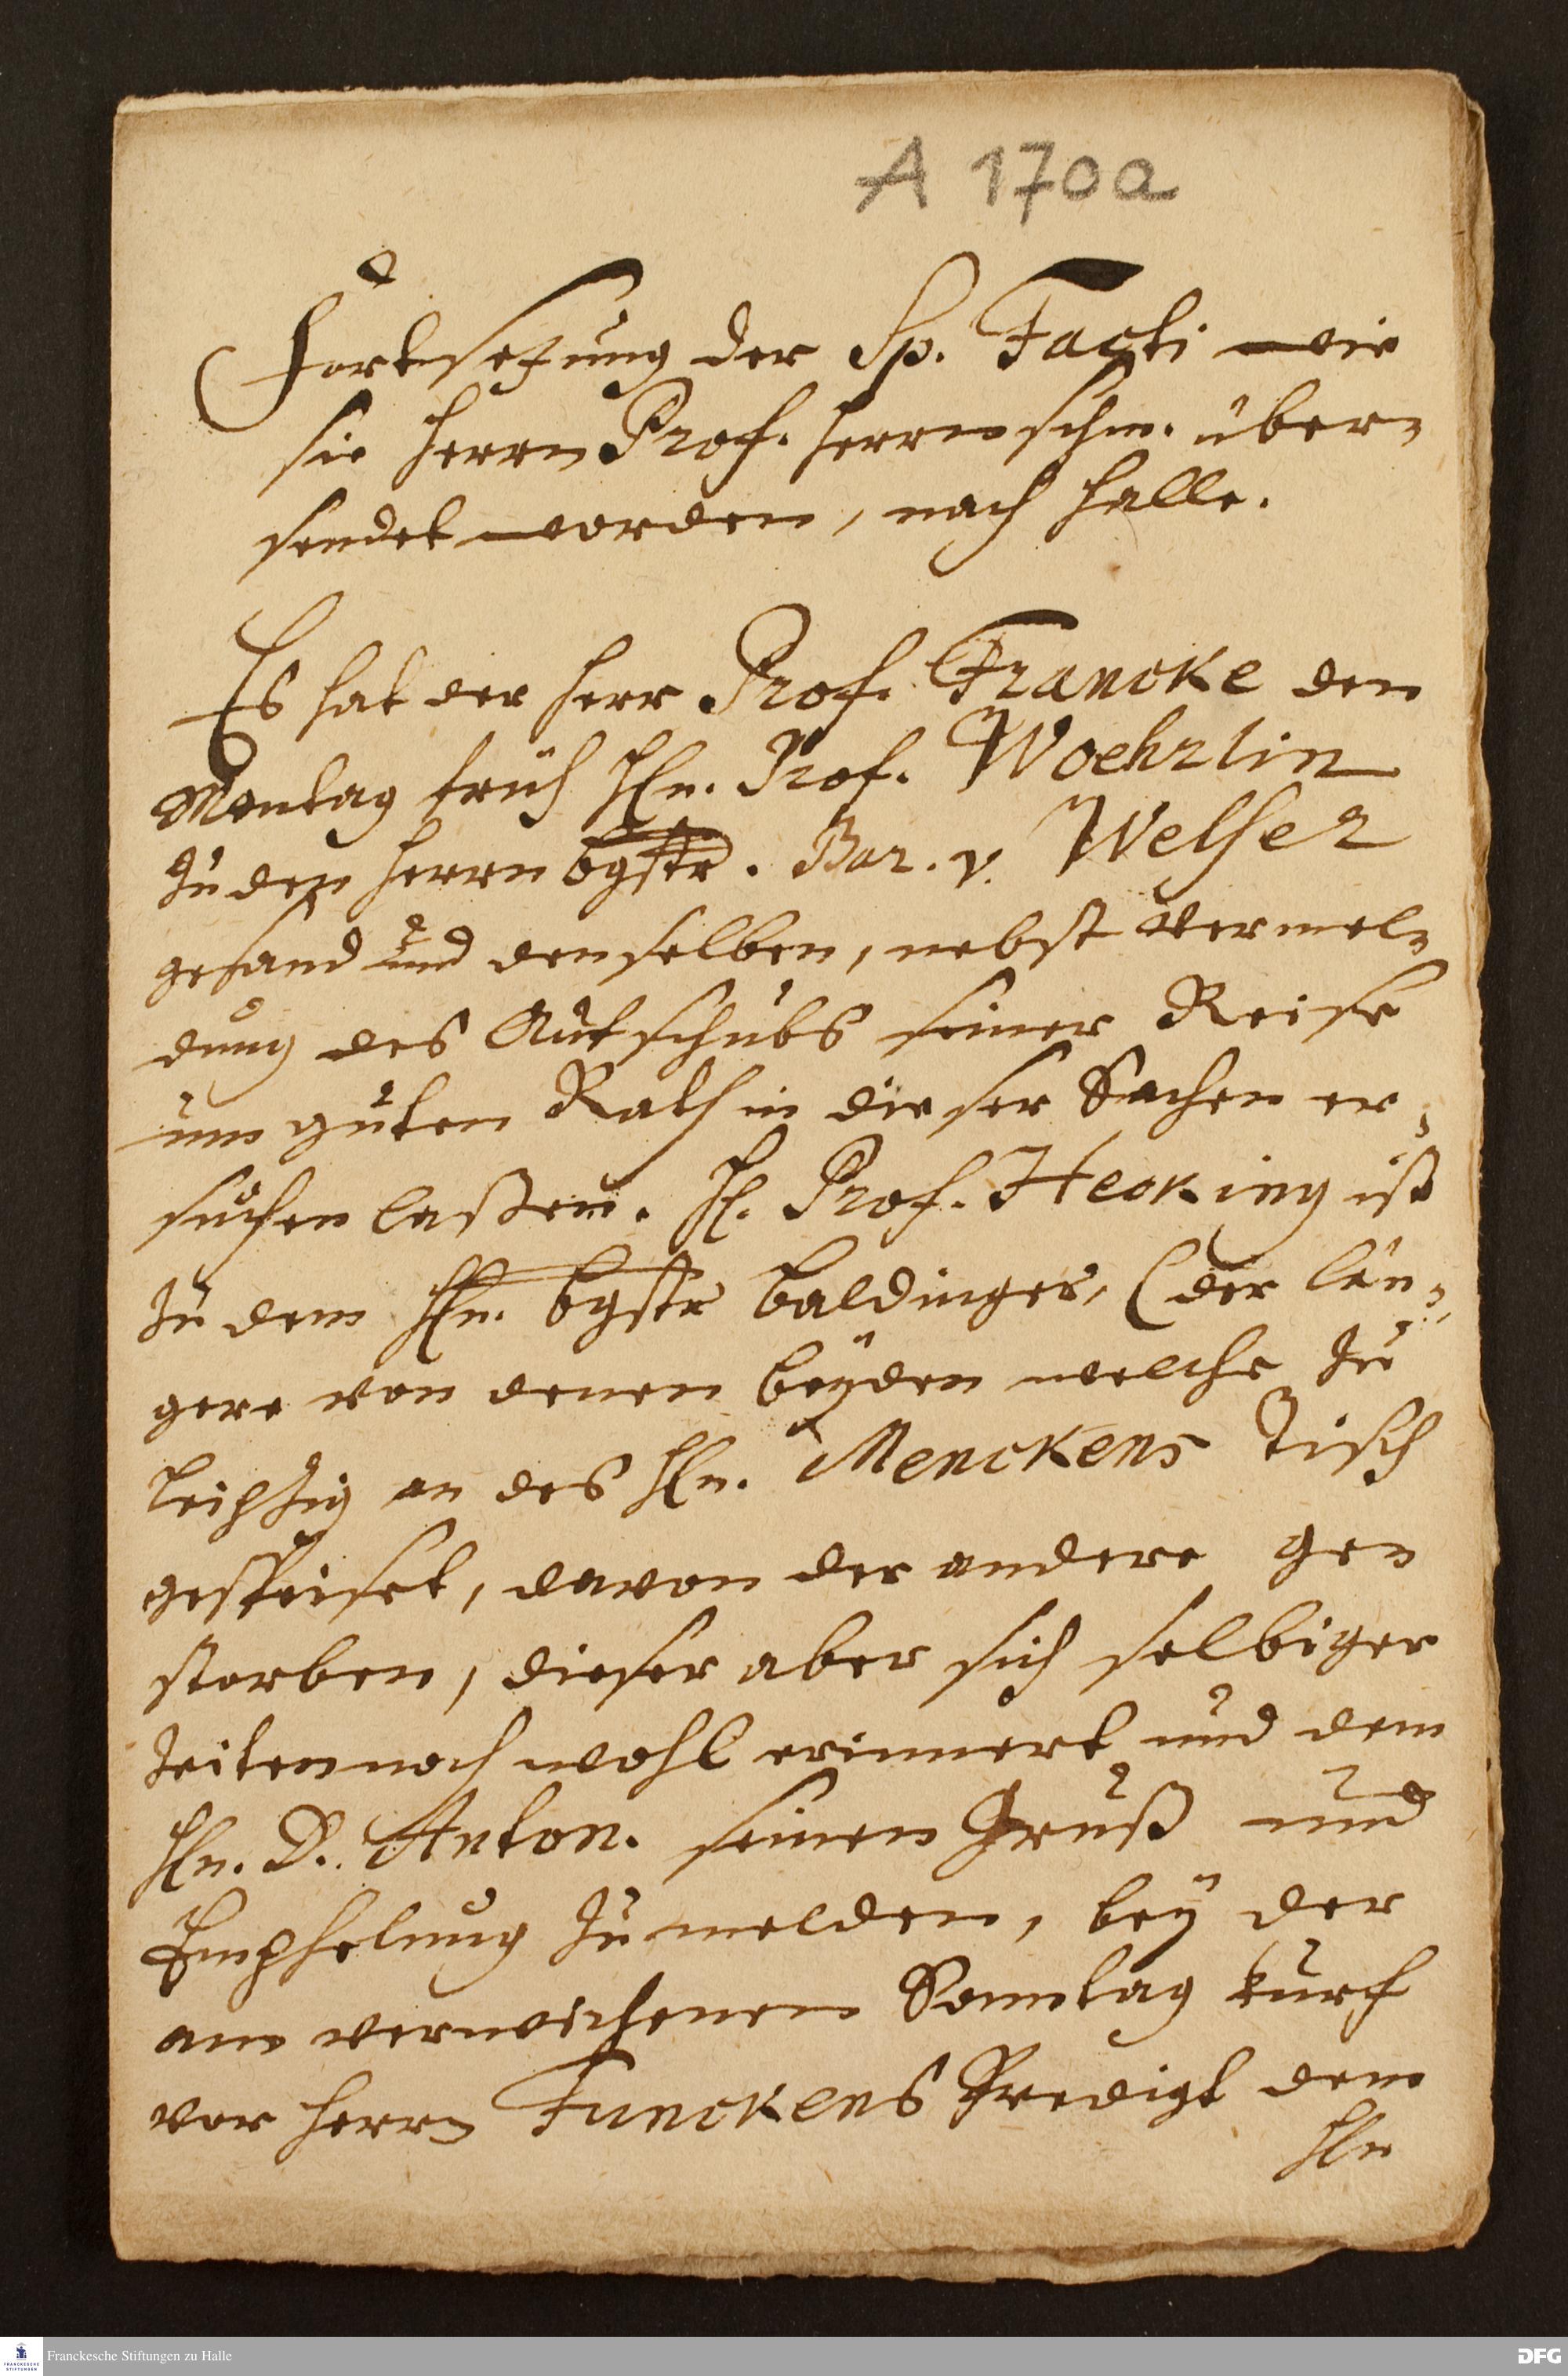 A 170a
Fortsetzung der Sp. Facti wie
sie Herrn Prof. Herrnschm. über-
sendet worden, nach Halle.
Es hat der Herr Prof. Francke den
Montag früh Hn. Prof. Woehrlin
zu den Herrn bgstr. Bar. v. Welser
gesand und denselben, nebst vermel-
dung des Aufschubs seiner Reise
um guten Rath in dieser Sachen er-
suchen laßen. H. Prof. Hecking ist
zu dem Hn. bgstr Baldinger, (der län-
gere von denen beyden welche zu
Leipzig an des Hn. Menckens Tisch
gespeiset, davon der andere ge-
storben, dieser aber sich selbiger
Zeiten noch wohl erinnert und dem
Hn. D. Anton. seinen Gruß und
Empfehlung zu melden, bey der
am verwichenen Sonntag kurtz
vor Herrn Funckens Predigt dem
Hn
Franckesche Stiftungen zu Halle
FRANCKESCHE STIFTUNGEN
DFG